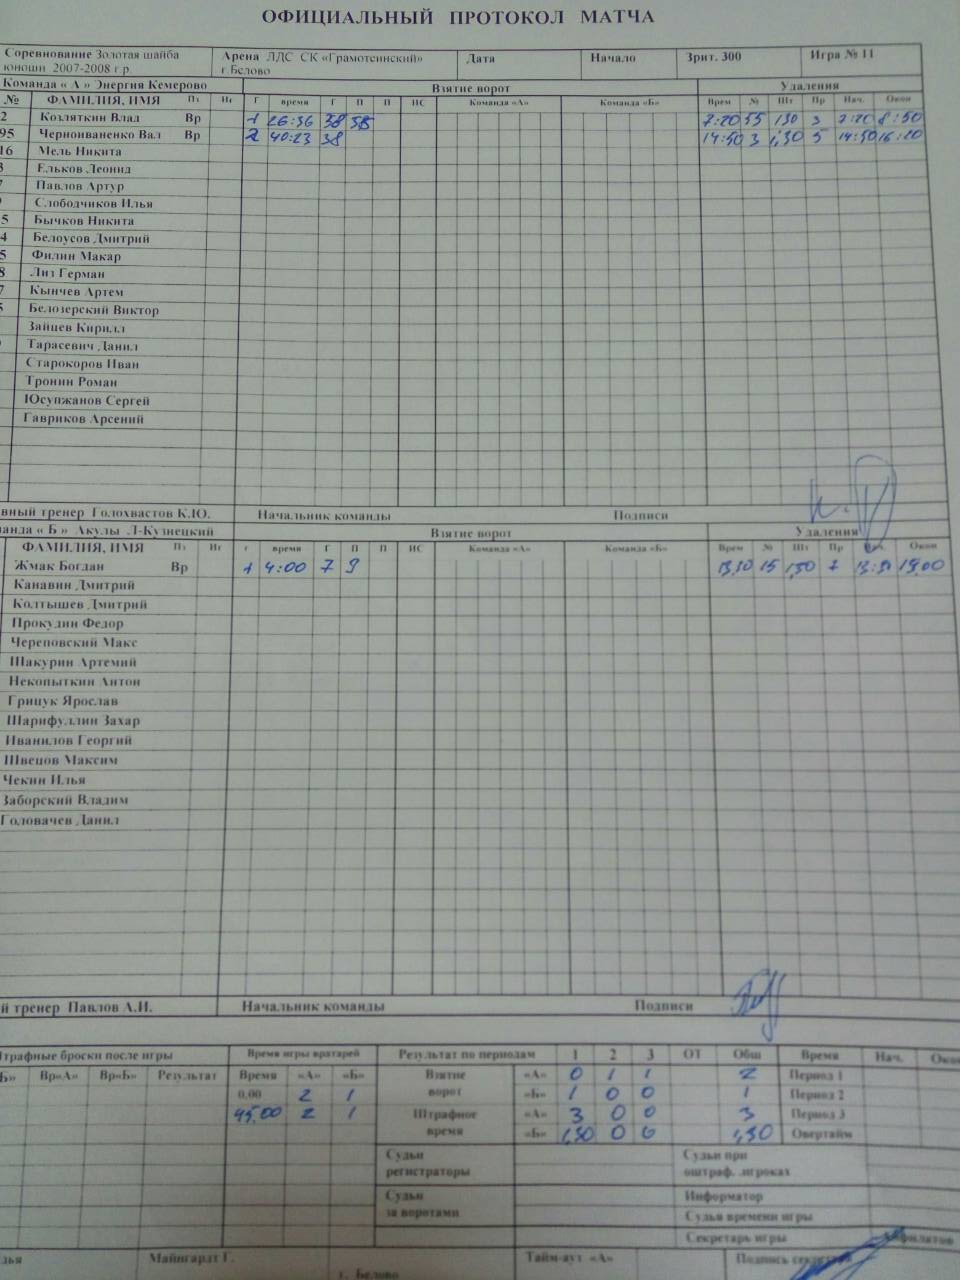 ОФИЦИАЛЬНЫЙ ПРОТОКОЛ МАТЧА
Соревнование Золотая шайба юноши 2007-2008 г.р.
Арена ЛДС СК «Грамотеинский» г.Белово
Дата Начало Зрит. 300 Игра № 11
Команда « А » Энергия Кемерово Взятие ворот Удаления
№ ФАМИЛИЯ, ИМЯ Пз Иг Г время Г П П ИС Команда «А» Команда «Б» Врем № Шт Пр Нач. Окон
2 Козляткин Влад Вр 1 26:36 38 58 7:20 55 130 3 7:20 8:50
95 Черноиваненко Вал Вр 2 40:23 38 14:50 3 1,30 5 14:50 16:20
16 Мель Никита
Ельков Леонид
Павлов Артур
Слободчиков Илья
5 Бычков Никита
4 Белоусов Дмитрий
5 Филин Макар
8 Лиз Герман
7 Кынчев Артем
Белозерский Виктор
Зайцев Кирилл
Тарасевич Данил
Старокоров Иван
Тронин Роман
Юсупжанов Сергей
Гавриков Арсений
вный тренер Голохвастов К.Ю. Начальник команды Подписи
анда « Б » Акулы Л-Кузнецкий Взятие ворот Удаления
ФАМИЛИЯ, ИМЯ Пз Иг г время Г П П ИС Команда «А» Команда «Б» Врем № Шт Пр Нач. Окон
Жмак Богдан Вр 1 4:00 7 9 13,30 15 1,30 7 13:30 15,00
Канавин Дмитрий
Колтышев Дмитрий
Прокудин Федор
Череповский Макс
Шакурин Артемий
Некопыткин Антон
Грицук Ярослав
Шарифуллин Захар
Иванилов Георгий
Швецов Максим
Чекин Илья
Заборский Владим
Головачев Данил
й тренер Павлов А.И. Начальник команды Подписи
трафные броски после игры Время игры вратарей Результат по периодам 1 2 3 ОТ Общ Время Нач. Око
Б» Вр«А» Вр«Б» Результат Время «А» «Б» Взятие ворот «А» 0 1 1 2 Период 1
0,00 2 1 «Б» 1 0 0 1 Период 2
45,00 2 1 Штрафное время «А» 3 0 0 3 Период 3
«Б» 1,30 0 0 1,30 Овертайм
Судьи регистраторы Судьи при оштраф. .игроках
Судьи за воротами Информатор
Судьи времени игры
Секретарь игры
дья Майнгардт Г. Тайм-аут «А» Подпись
г. Белово